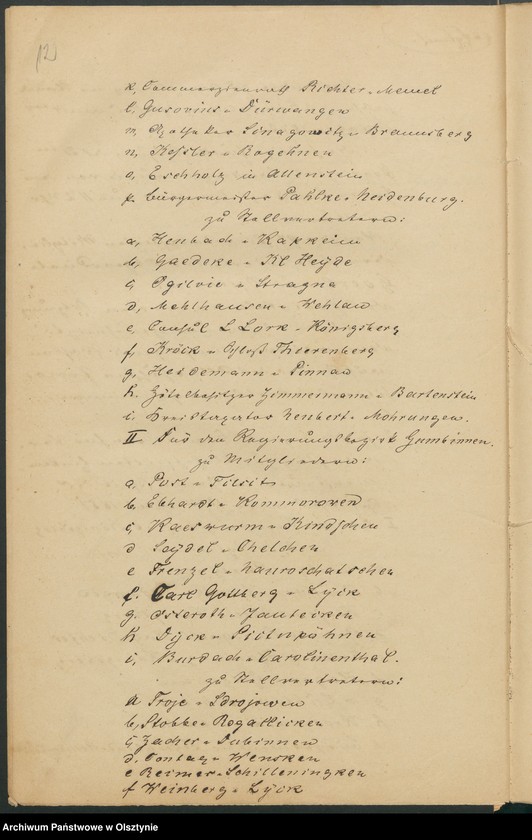 12)
k, Commerzienrath Richter - Memel
l, Gusovius - Dürwangen
m, Apotheker Sinagowitz - Braunsberg
n, Kessler - Rogehnen
o, Eschholz in Allenstein
p. Bürgermeister Pahlke - Neidenburg.
zu Stellvertretern:
a, Henbach - Kapkeim
b, Gaedeke - Kl Heyde
c, Ogilvie - Stragna
d, Mehlhausen - Wehlau
e, Consul L Lork - Königsberg
f, Kröck - Schloß Thierenberg
g, Heidemann - Pinnau
h. Gutsbesitzer Zimmermann - Bartenstein
i. Kreistaxator Neubert - Mohrungen.
II Für den Regierungsbezirk Gumbinnen.
zu Mitgliedern:
a, Post - Tilsit
b, Ebhardt - Kommorowen
c, Kaeswurm - Kindschen
d Seydel - Chelchen
e Frenzel - Nauroschatschen
f. Carl Gottberg - Lyck
g. Osteroth - Jautecken
h Dyck - Pictupöhnen
i, Burdach - Carolinenthal.
zu Stellvertretern:
a Troje - Sdrojowen
b, Stobbe - Rogallicken
c, Zacher - Dubinnen
d. Contag - Wensken
e Reimer - Schilleningken
f Weinberg - Lyck
Archiwum Państwowe w Olsztynie